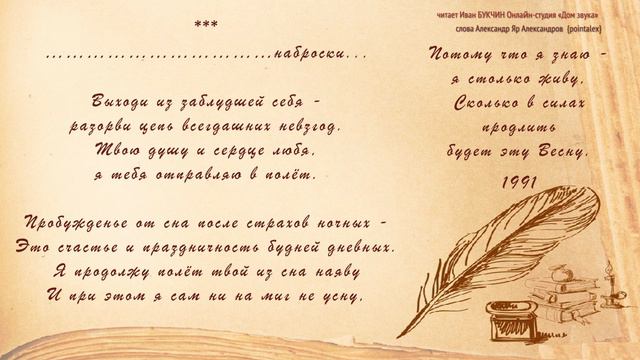 читает Иван БУКЧИН Онлайн-студия «Дом звука»
слова Александр Яр Александров (pointalex)
***
................................наброски...
Выходи из заблудшей себя -
разорви цепь всегдашних невзгод.
Твою душу и сердце любя,
я тебя отправляю в полёт.
Пробужденье от сна после страхов ночных -
Это счастье и праздничность будней дневных.
Я продолжу полёт твой из сна наяву
И при этом я сам ни на миг не усну,
Потому что я знаю -
я столько живу,
Сколько в силах
продлить
будет эту Весну.
1991